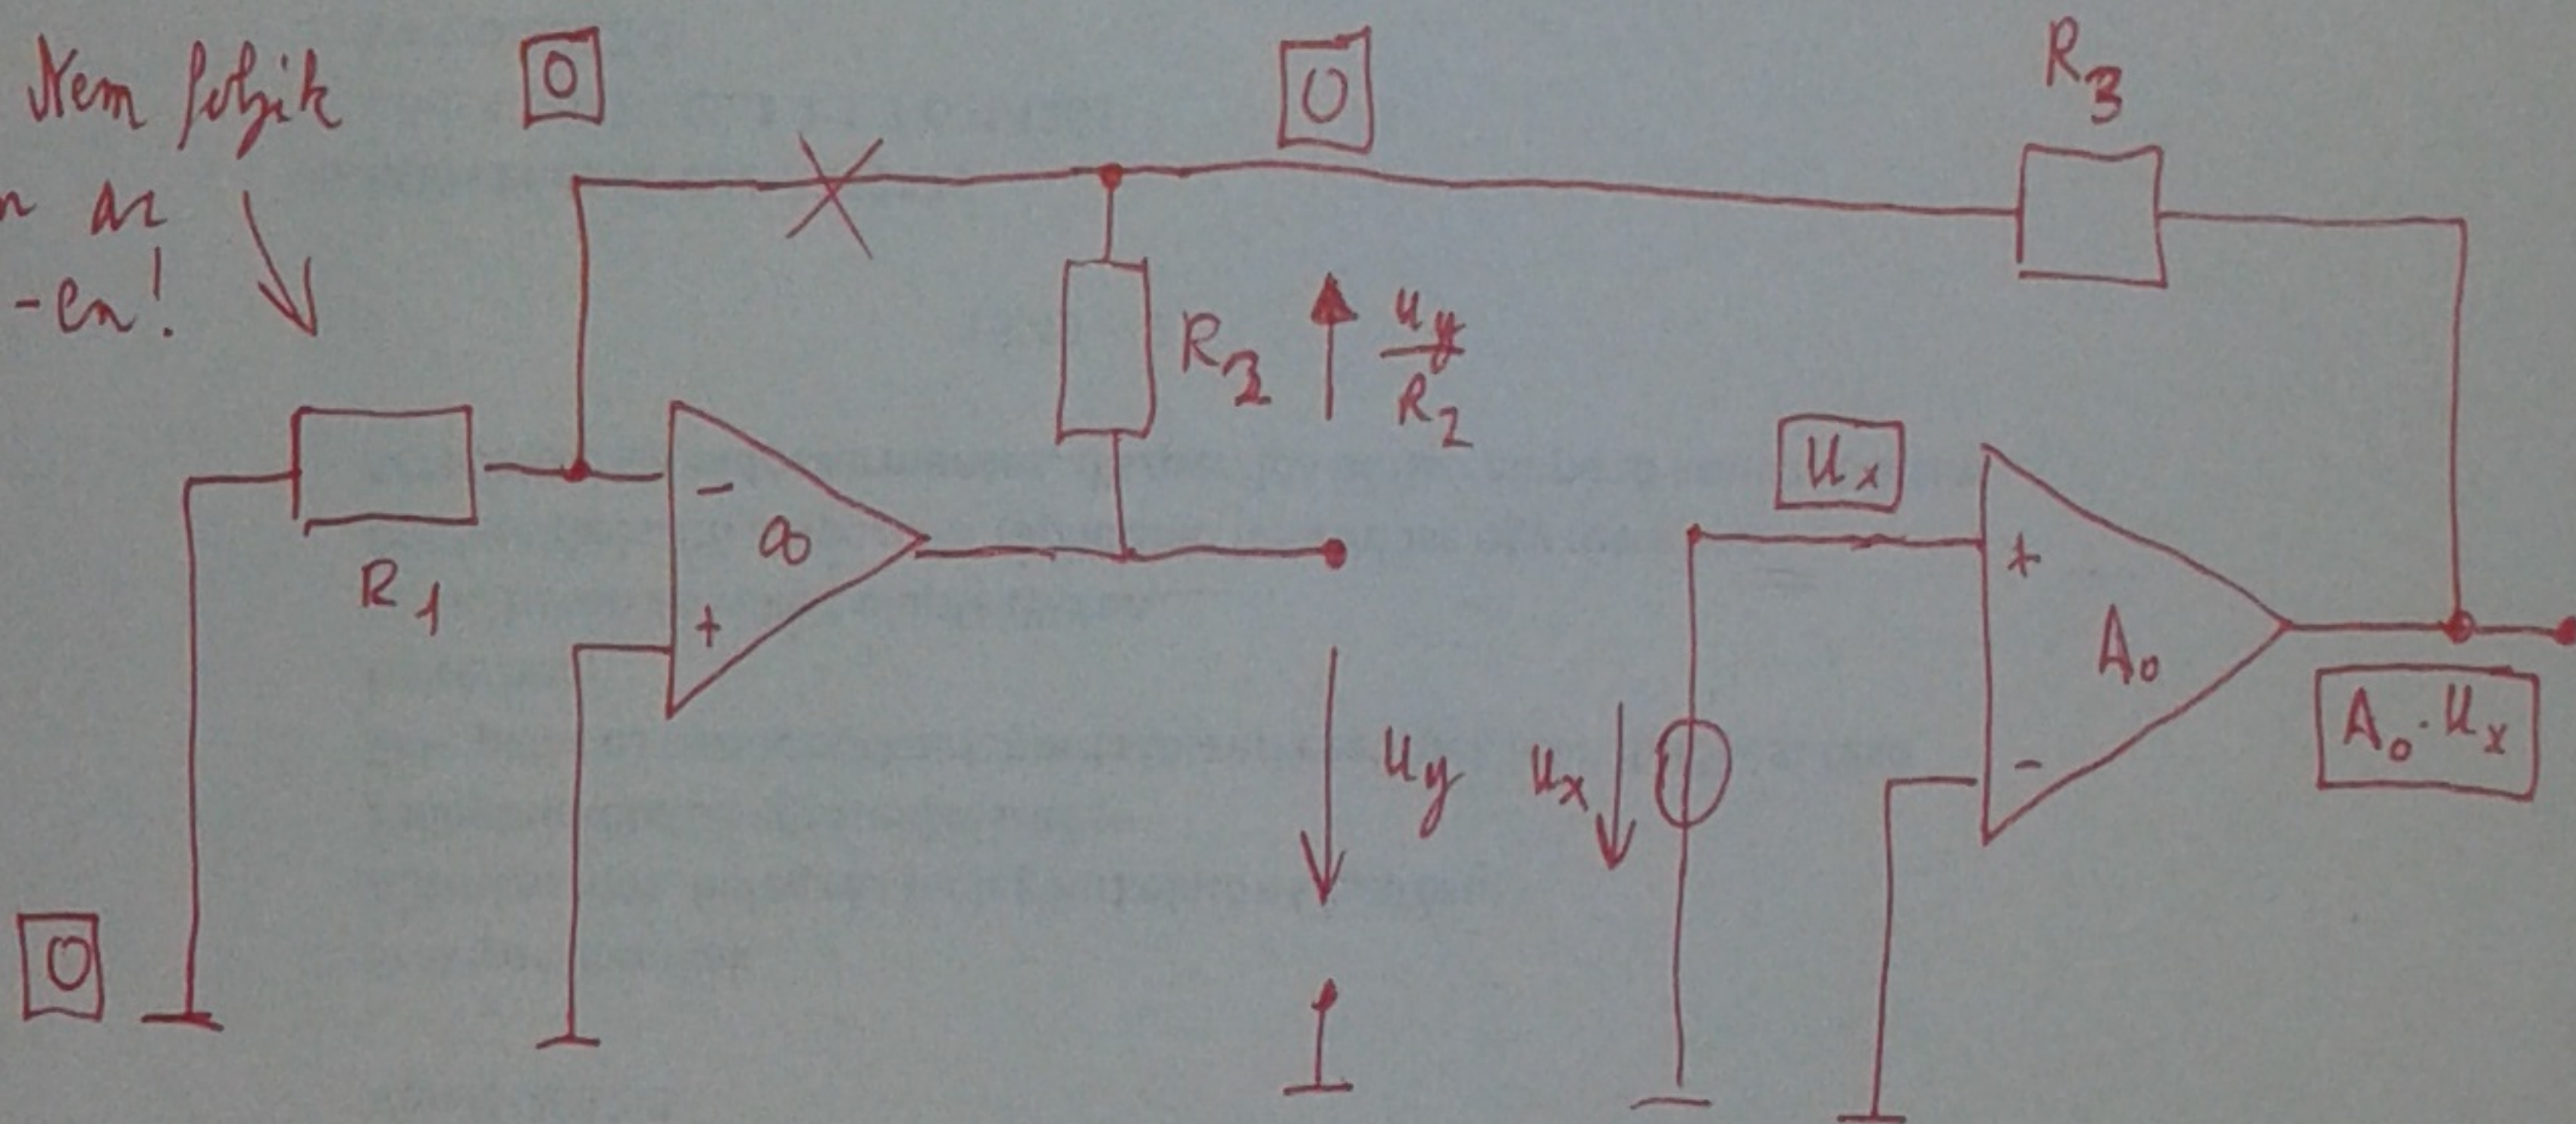 Nem folyik
n az
-en!
0
0
R3
R2
uy
R2
Ux
-
∞
+
R1
+
A0
-
A0·Ux
uy
ux
0